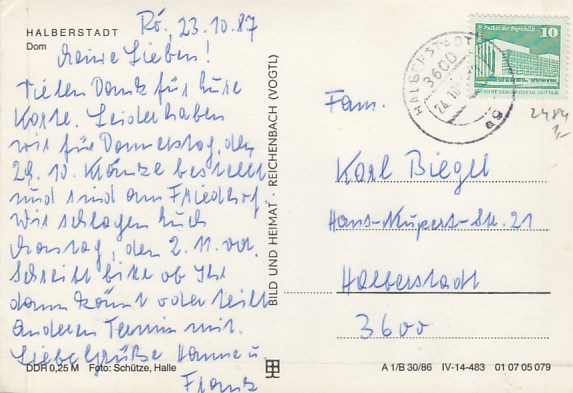 HALBERSTADT
Dom
Rö, 23.10.87
Meine Lieben!
Vielen Dank für Eure
Karte. Leider haben
wir für Donnerstag, den
29.10. Kränze bestellt
und sind am Friedhof.
Wir schlagen Euch
Montag, den 2.11. vor.
Schreibt bitte ob Ihr
dann könnt oder teilt
anderen Termin mit.
Liebe Grüße Hanne u.
Frank
DDR 0,25 M Foto: Schütze, Halle
BILD UND HEIMAT · REICHENBACH (VOGTL)
Palast der Republik
10
HALBERSTADT
3600
24.10
Fam.
Karl Biegel
Hans-Kupert-Str. 21
Halberstadt
3600
A 1/B 30/86 IV-14-483 01 07 05 079